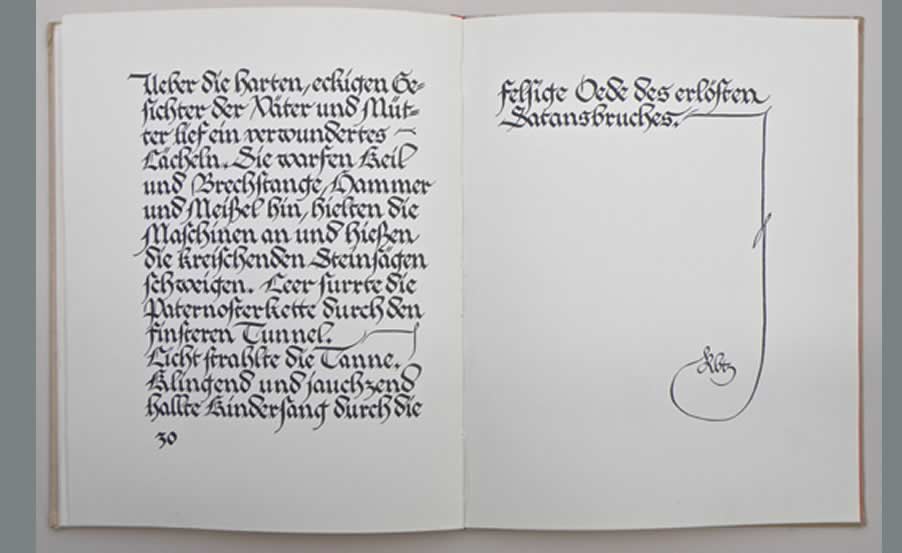 Ueber die harten, eckigen Ge-
sichter der Väter und Müt-
ter lief ein verwundertes
Lächeln. Sie warfen Keil
und Brechstange, Hammer
und Meißel hin, hielten die
Maschinen an und hießen
die kreischenden Steinsägen
schweigen. Leer surrte die
Paternosterkette durch den
finsteren Tunnel.
Licht strahlte die Tanne.
Klingend und jauchzend
hallte Kindersang durch die
30
felsige Oede des erlösten
Satansbruches.